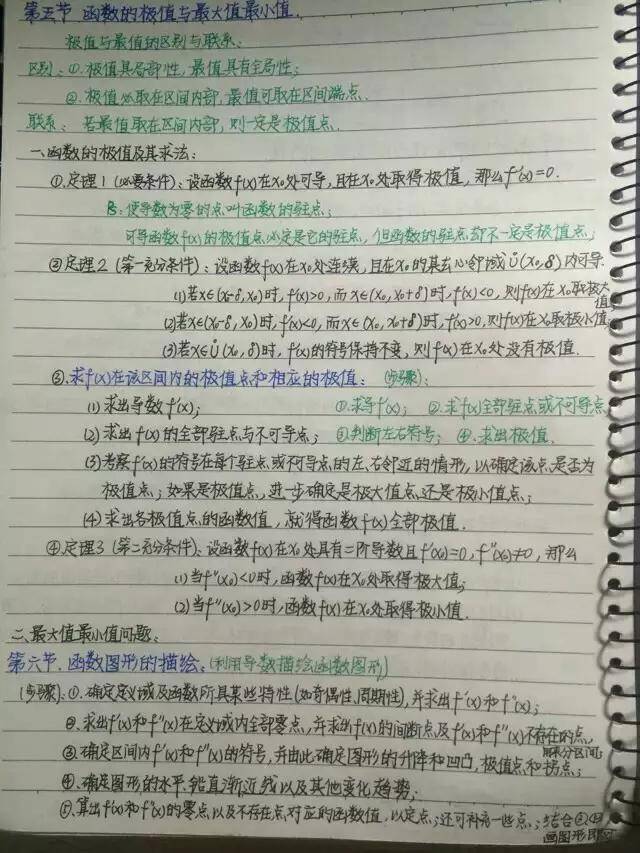 第五节 函数的极值与最大值最小值.
极值与最值的区别与联系:
区别: ①.极值具局部性,最值具有全局性;
②.极值必取在区间内部,最值可取在区间端点.
联系: 若最值取在区间内部,则一定是极值点.
一.函数的极值及其求法:
①.定理1(必要条件):设函数f(x)在x₀处可导,且在x₀处取得极值,那么f'(x)=0.
使导数为零的点叫函数的驻点;
可导函数f(x)的极值点必定是它的驻点,但函数的驻点却不一定是极值点;
②定理2(第一充分条件):设函数f(x)在x₀处连续,且在x₀的某去心邻域Ů(x₀,δ)内可导.
(1)若x∈(x₀-δ,x₀)时,f'(x)>0,而x∈(x₀,x₀+δ)时,f'(x)<0,则f(x)在x₀取极大值
(2)若x∈(x₀-δ,x₀)时,f'(x)<0,而x∈(x₀,x₀+δ)时,f'(x)>0,则f(x)在x₀取极小值
(3)若x∈Ů(x₀,δ)时,f'(x)的符号保持不变,则f(x)在x₀处没有极值.
③.求f(x)在该区间内的极值点和相应的极值: (步骤):
(1)求出导数f'(x); ①.求导f'(x); ②.求f'(x)全部驻点或不可导点
(2)求出f'(x)的全部驻点与不可导点; ③判断左右符号; ④.求出极值.
(3)考察f'(x)的符号在每个驻点或不可导点的左、右邻近的情形,以确定该点是否为
极值点;如果是极值点,进一步确定是极大值点还是极小值点;
(4)求出各极值点的函数值,就得函数f(x)全部极值.
④定理3(第二充分条件):设函数f(x)在x₀处具有二阶导数且f'(x₀)=0,f''(x₀)≠0,那么
(1)当f''(x₀)<0时,函数f(x)在x₀处取得极大值;
(2)当f''(x₀)>0时,函数f(x)在x₀处取得极小值.
二.最大值最小值问题:
第六节.函数图形的描绘:(利用导数描绘函数图形)
(步骤):①.确定定义域及函数所具某些特性(如奇偶性、周期性),并求出f'(x)和f''(x);
②.求出f'(x)和f''(x)在定义域内全部零点,并求出f(x)的间断点及f'(x)和f''(x)不存在的点,
划分区间;
③确定区间内f'(x)和f''(x)的符号,并由此确定图形的升降和凹凸,极值点和拐点;
④.确定图形的水平、铅直渐近线以及其他变化趋势;
⑤.算出f'(x)和f''(x)的零点以及不存在点对应的函数值,以定点;还可补充一些点;结合③④
画图形即可